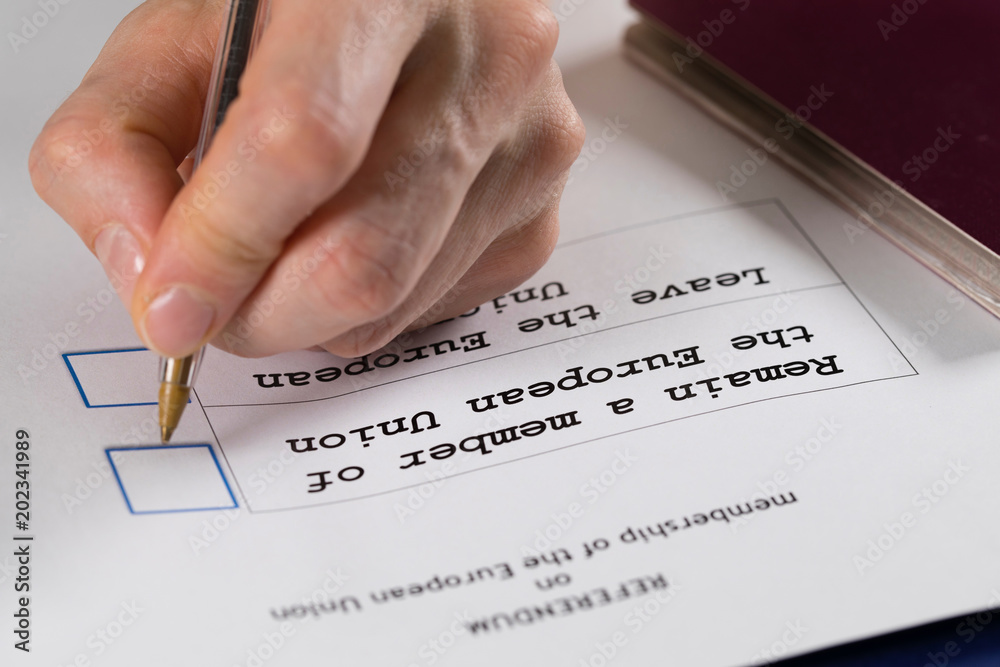 REFERENDUM
on
membership of the European Union
Remain a member of
the European Union
Leave the European
Union
Adobe Stock | #202341989